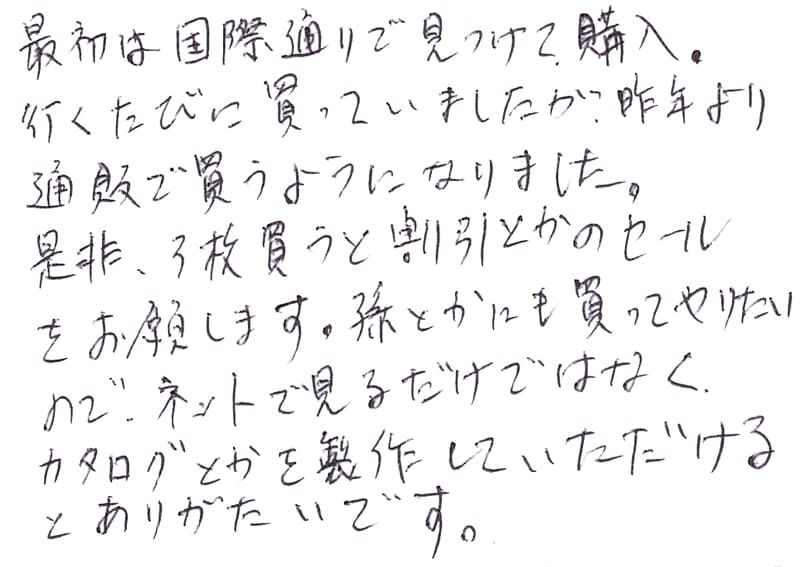 最初は国際通りで見つけて、購入。
行くたびに買っていましたが、昨年より
通販で買うようになりました。
是非、3枚買うと割引とかのセール
をお願します。孫とかにも買ってやりたい
ので、ネットで見るだけではなく、
カタログとかを製作していただける
とありがたいです。